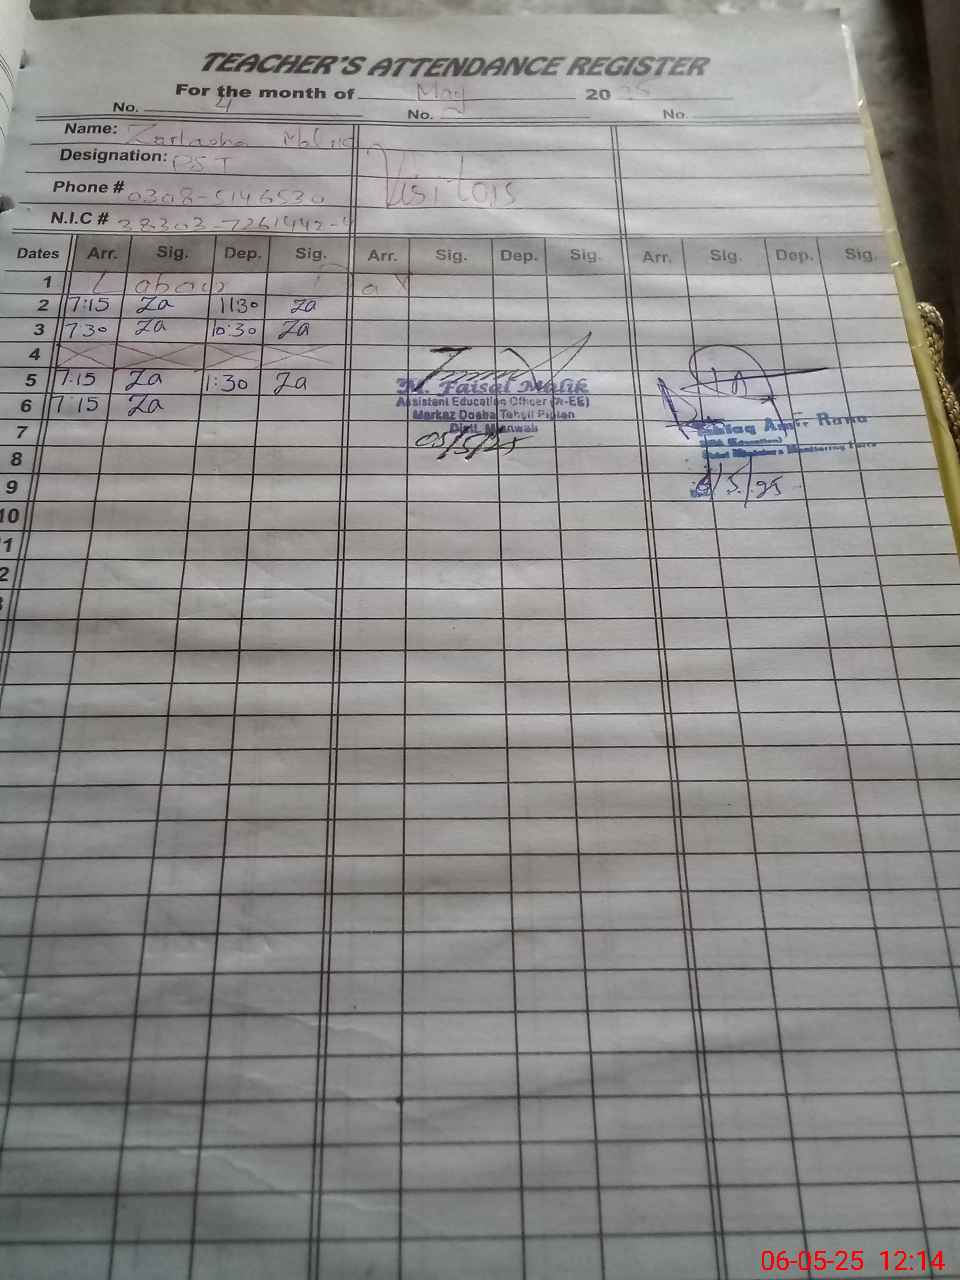 TEACHER'S ATTENDANCE REGISTER
For the month of May 2025
No. 4 No. No.
Name: Zartasha Malik
Designation: PST
Phone # 0308-5146530
N.I.C # 38303-7261442-4
Visitors
Dates Arr. Sig. Dep. Sig. Arr. Sig. Dep. Sig. Arr. Sig. Dep. Sig.
1 Labour Day
2 7:15 Za 11:30 Za
3 7:30 Za 10:30 Za
4
5 7:15 Za 1:30 Za
6 7:15 Za
7
8
9
10
1
2
M. Faisal Malik
Assistant Education Officer (A-EE)
Markaz Doaba Tehsil Piplan
Distt. Mianwali
05/5/25
Amir Rana
(Education)
Monitoring
6/5/25
06-05-25 12:14